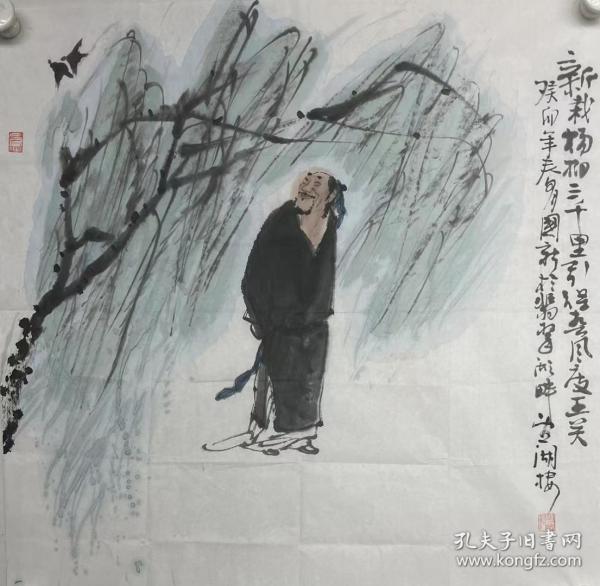 新栽杨柳三千里引得春风度玉关
癸卯年春月国新於翡翠湖畔 湖楼
孔夫子旧书网
www.kongfz.com